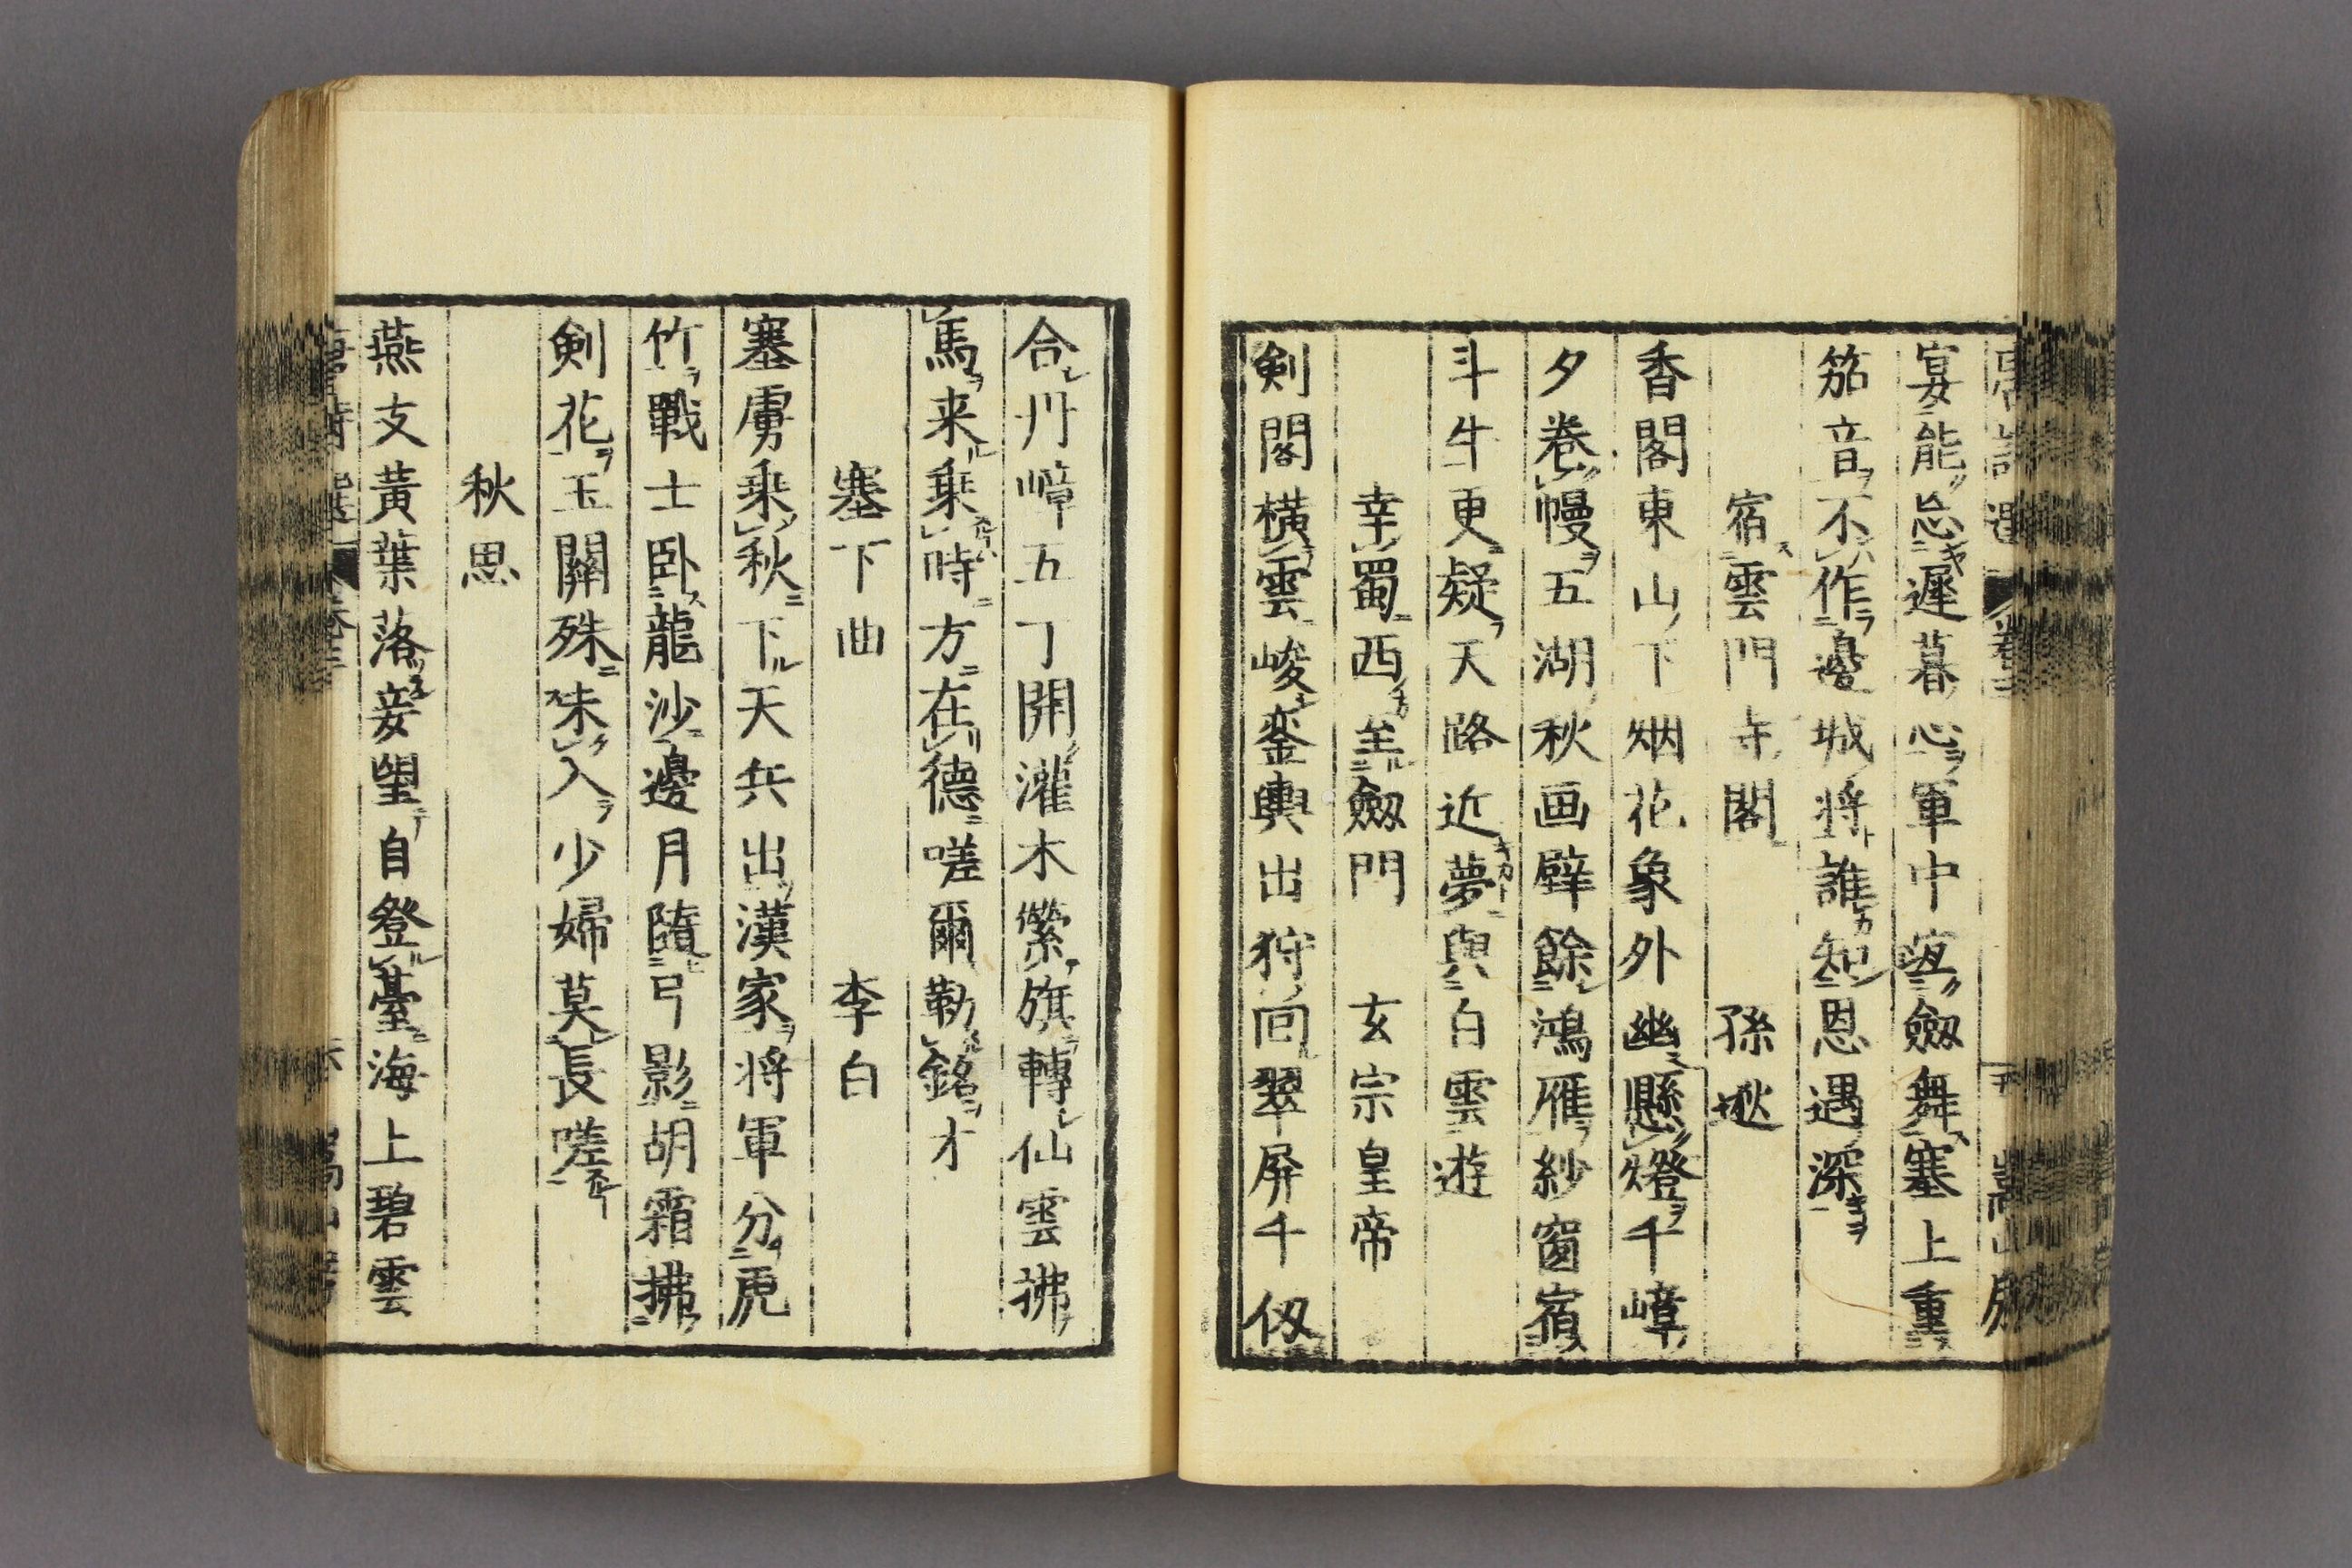 宴能忘遲暮心軍中宜劔舞塞上重
笳音不作邊城将誰知恩遇深
宿雲門寺閣 孫逖
香閣東山下烟花象外幽懸燈千嶂
夕巻幔五湖秋画壁餘鴻雁紗窗宿
斗牛更疑天路近夢與白雲遊
幸蜀西至劔門 玄宗皇帝
剣閣横雲峻鑾輿出狩回翠屏千仭
合丹嶂五丁開灌木縈旗轉仙雲拂
馬来乗時方在德嗟爾勒銘才
塞下曲 李白
塞虜乗秋下天兵出漢家将軍分虎
竹戰士臥龍沙邊月隨弓影胡霜拂
剣花玉關殊未入少婦莫長嗟
秋思
燕支黄葉落妾望自登臺海上碧雲